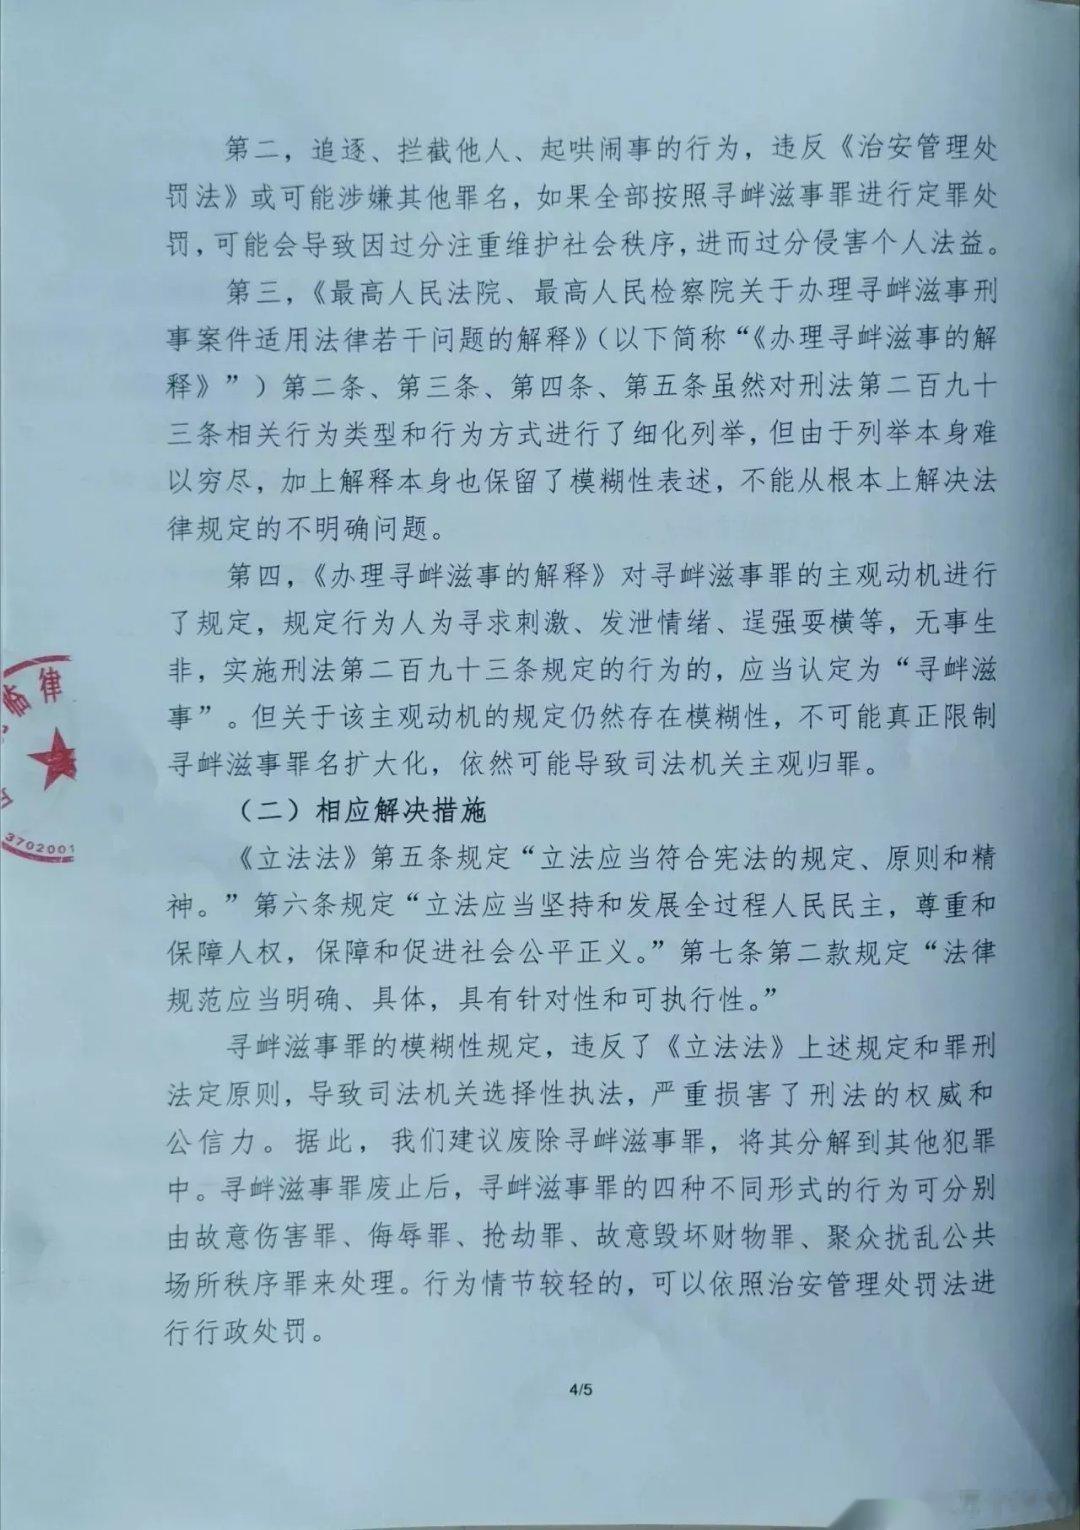 第二，追逐、拦截他人、起哄闹事的行为，违反《治安管理处
罚法》或可能涉嫌其他罪名，如果全部按照寻衅滋事罪进行定罪处
罚，可能会导致因过分注重维护社会秩序，进而过分侵害个人法益。
第三，《最高人民法院、最高人民检察院关于办理寻衅滋事刑
事案件适用法律若干问题的解释》（以下简称“《办理寻衅滋事的解
释》”）第二条、第三条、第四条、第五条虽然对刑法第二百九十
三条相关行为类型和行为方式进行了细化列举，但由于列举本身难
以穷尽，加上解释本身也保留了模糊性表述，不能从根本上解决法
律规定的不明确问题。
第四，《办理寻衅滋事的解释》对寻衅滋事罪的主观动机进行
了规定，规定行为人为寻求刺激、发泄情绪、逞强耍横等，无事生
非，实施刑法第二百九十三条规定的行为的，应当认定为“寻衅滋
事”。但关于该主观动机的规定仍然存在模糊性，不可能真正限制
寻衅滋事罪名扩大化，依然可能导致司法机关主观归罪。
（二）相应解决措施
《立法法》第五条规定“立法应当符合宪法的规定、原则和精
神。”第六条规定“立法应当坚持和发展全过程人民民主，尊重和
保障人权，保障和促进社会公平正义。”第七条第二款规定“法律
规范应当明确、具体，具有针对性和可执行性。”
寻衅滋事罪的模糊性规定，违反了《立法法》上述规定和罪刑
法定原则，导致司法机关选择性执法，严重损害了刑法的权威和
公信力。据此，我们建议废除寻衅滋事罪，将其分解到其他犯罪
中。寻衅滋事罪废止后，寻衅滋事罪的四种不同形式的行为可分别
由故意伤害罪、侮辱罪、抢劫罪、故意毁坏财物罪、聚众扰乱公共
场所秩序罪来处理。行为情节较轻的，可以依照治安管理处罚法进
行行政处罚。
4/5
临律
3702001